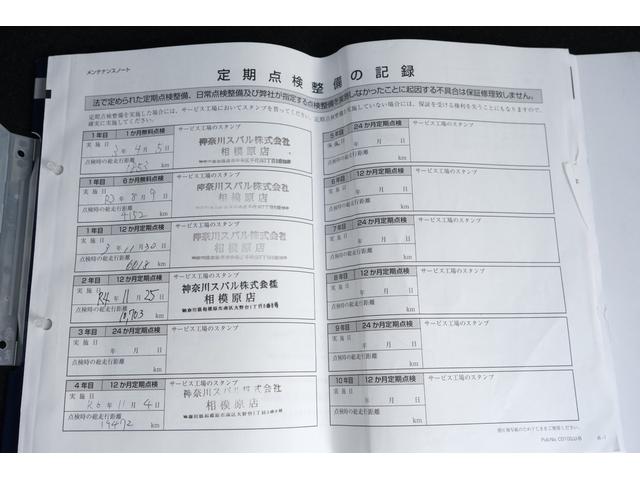 メンテナンスノート
定期点検整備の記録
法で定められた定期点検整備、日常点検整備及び弊社が指定する点検整備を実施しなかったことに起因する不具合は保証修理致しません。
定期点検整備を実施した場合には、サービス工場においてスタンプを貰ってください。定期点検整備を実施していない場合には、保証を受ける権利を失うことにもなりますので、
確実に実施してください。
1年目 1か月無料点検 サービス工場のスタンプ
実施日 3年4月5日
神奈川スバル株式会社
相模原店
点検時の総走行距離
1253 km
1年目 6か月無料点検 サービス工場のスタンプ
実施日 R3年8月9日
神奈川スバル株式会社
相模原店
点検時の総走行距離
4152 km
1年目 12か月定期点検 サービス工場のスタンプ
実施日 3年11月30日
神奈川スバル株式会社
相模原店
点検時の総走行距離
6018 km
2年目 12か月定期点検 サービス工場のスタンプ
実施日 R4年11月25日
神奈川スバル株式会社
相模原店
神奈川県相模原市南区大野台1丁目
点検時の総走行距離
10703 km
3年目 24か月定期点検 サービス工場のスタンプ
実施日 年 月 日
点検時の総走行距離
km
4年目 12か月定期点検 サービス工場のスタンプ
実施日 R6年11月4日
神奈川スバル株式会社
相模原店
神奈川県相模原市南区大野台1丁目
点検時の総走行距離
19472 km
5年目 24か月定期点検 サービス工場のスタンプ
実施日 年 月 日
点検時の総走行距離
km
6年目 12か月定期点検 サービス工場のスタンプ
実施日 年 月 日
点検時の総走行距離
km
7年目 24か月定期点検 サービス工場のスタンプ
実施日 年 月 日
点検時の総走行距離
km
8年目 12か月定期点検 サービス工場のスタンプ
実施日 年 月 日
点検時の総走行距離
km
9年目 24か月定期点検 サービス工場のスタンプ
実施日 年 月 日
点検時の総走行距離
km
10年目 12か月定期点検 サービス工場のスタンプ
実施日 年 月 日
点検時の総走行距離
km